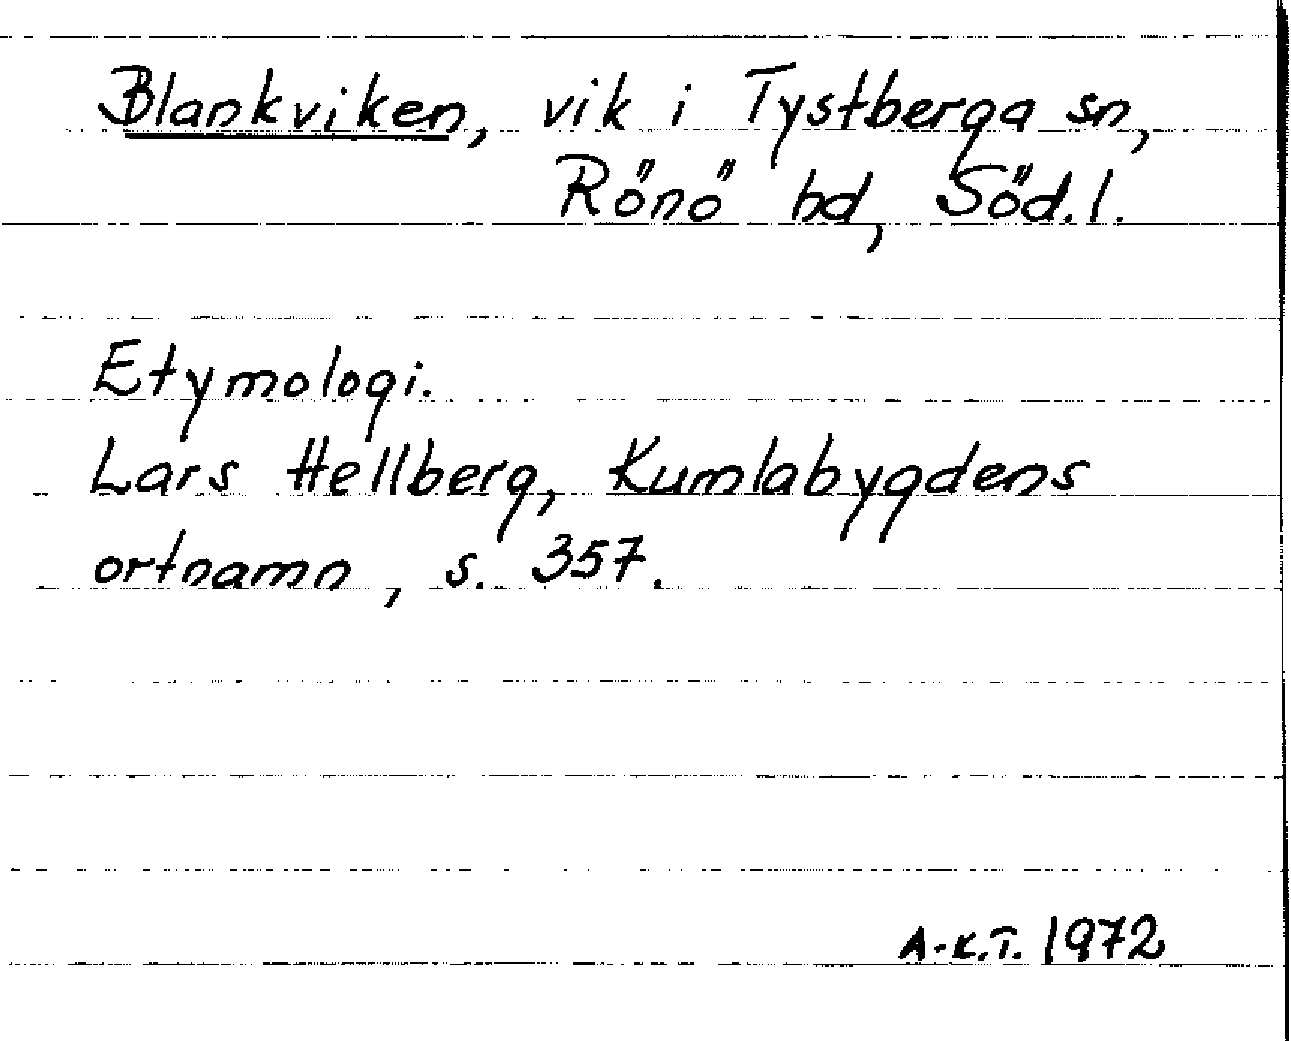 Blankviken, vik i Tystberga sn,
Rönö hd, Söd.l.
Etymologi.
Lars Hellberg, Kumlabygdens
ortnamn, s. 357.
A-K.T. 1972